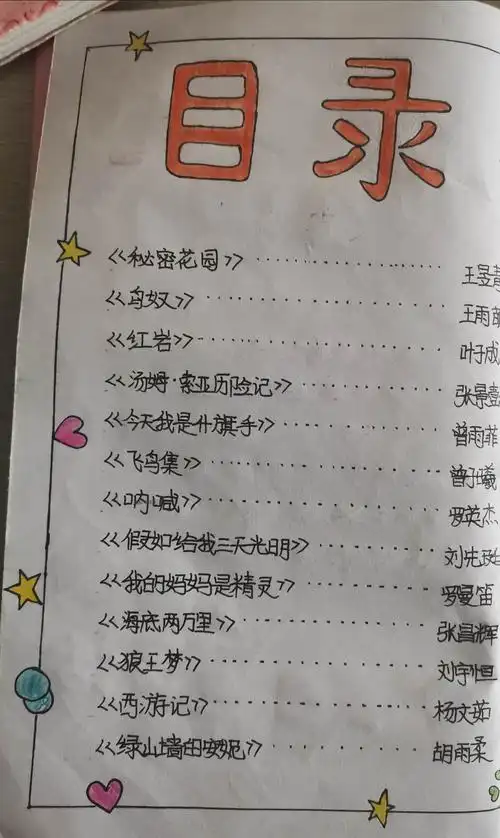 目录
《秘密花园》 王昱
《鸟奴》 王雨
《红岩》 叶子成
《汤姆·索亚历险记》 张景
《今天我是升旗手》 曾雨菲
《飞鸟集》 曾子曦
《呐喊》 罗英杰
《假如给我三天光明》 刘先
《我的妈妈是精灵》 罗曼笛
《海底两万里》 张昌辉
《狼王梦》 刘宇恒
《西游记》 杨文茹
《绿山墙的安妮》 胡雨柔